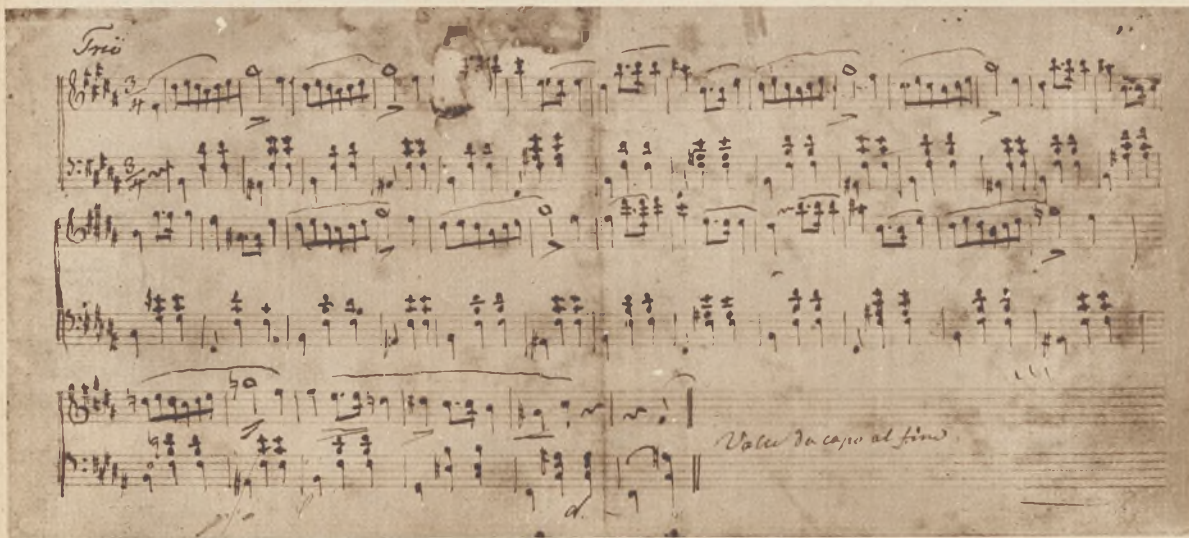 Trio
3
4
3
4
Valse da capo al fine.